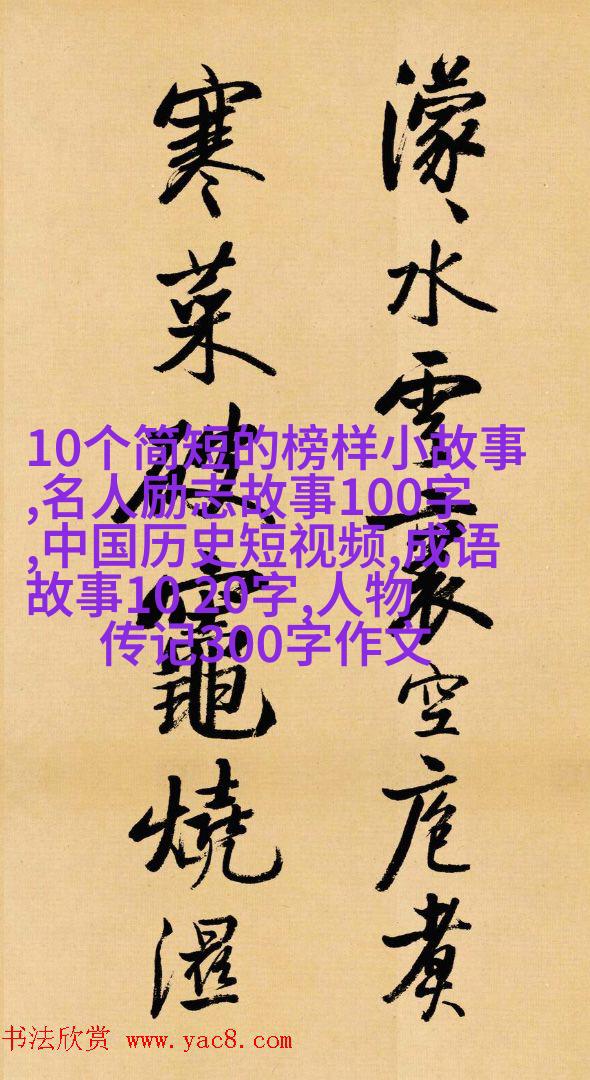 濛〻水雲裏空庖煮
寒菜破竈燒濕
10个简短的榜样小故事
,名人励志故事100字
,中国历史短视频,成语
故事10 20字,人物
传记300字作文
书法欣赏 www.yac8.com